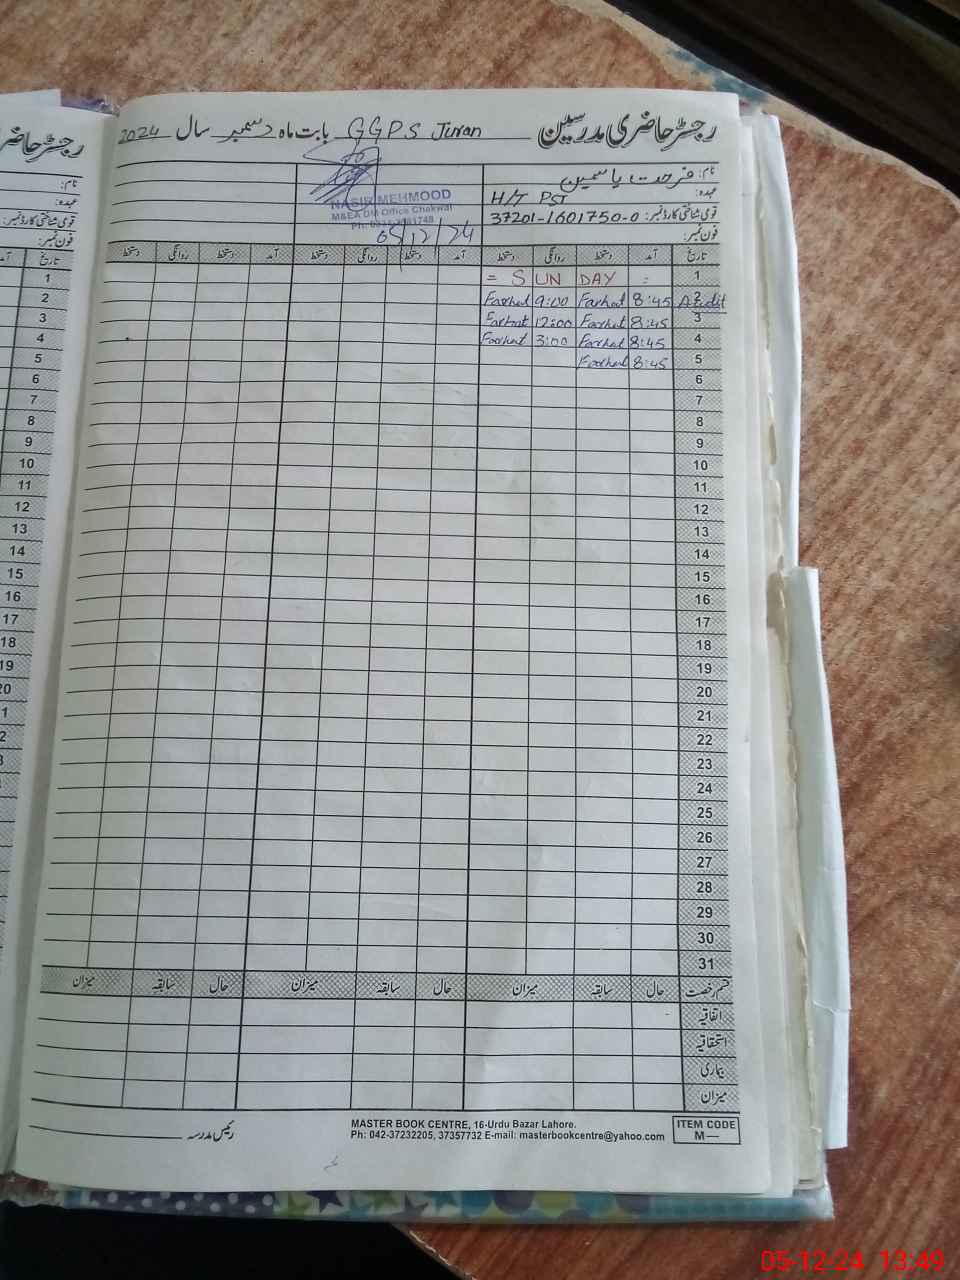 رجسٹر حاضری مدرسین GGPS Juran بابت ماہ دسمبر سال 2024
نام: فرحت یاسمین
عہدہ: H/T PST
قومی شناختی کارڈ نمبر: 37201-1601750-0
فون نمبر:
NASIR MEHMOOD
M&EA DM Office Chakwal
05/12/24
تاریخ آمد دستخط روانگی دستخط آمد دستخط روانگی دستخط آمد دستخط روانگی دستخط
1 = SUNDAY =
2 Audit 8:45 Farhat 9:00 Farhat
3 8:45 Farhat 12:00 Farhat
4 8:45 Farhat 3:00 Farhat
5 8:45 Farhat
6
7
8
9
10
11
12
13
14
15
16
17
18
19
20
21
22
23
24
25
26
27
28
29
30
31
قسم رخصت حال سابقہ میزان حال سابقہ میزان حال سابقہ میزان
اتفاقیہ
استحقاقیہ
بیماری
میزان
رئیس مدرسہ
MASTER BOOK CENTRE, 16-Urdu Bazar Lahore.
Ph: 042-37232205, 37357732 E-mail: masterbookcentre@yahoo.com
ITEM CODE
M—
رجسٹر حاضری
نام:
عہدہ:
قومی شناختی کارڈ نمبر:
فون نمبر:
تاریخ
1
2
3
4
5
6
7
8
9
10
11
12
13
14
15
16
17
18
19
20
05-12-24 13:49